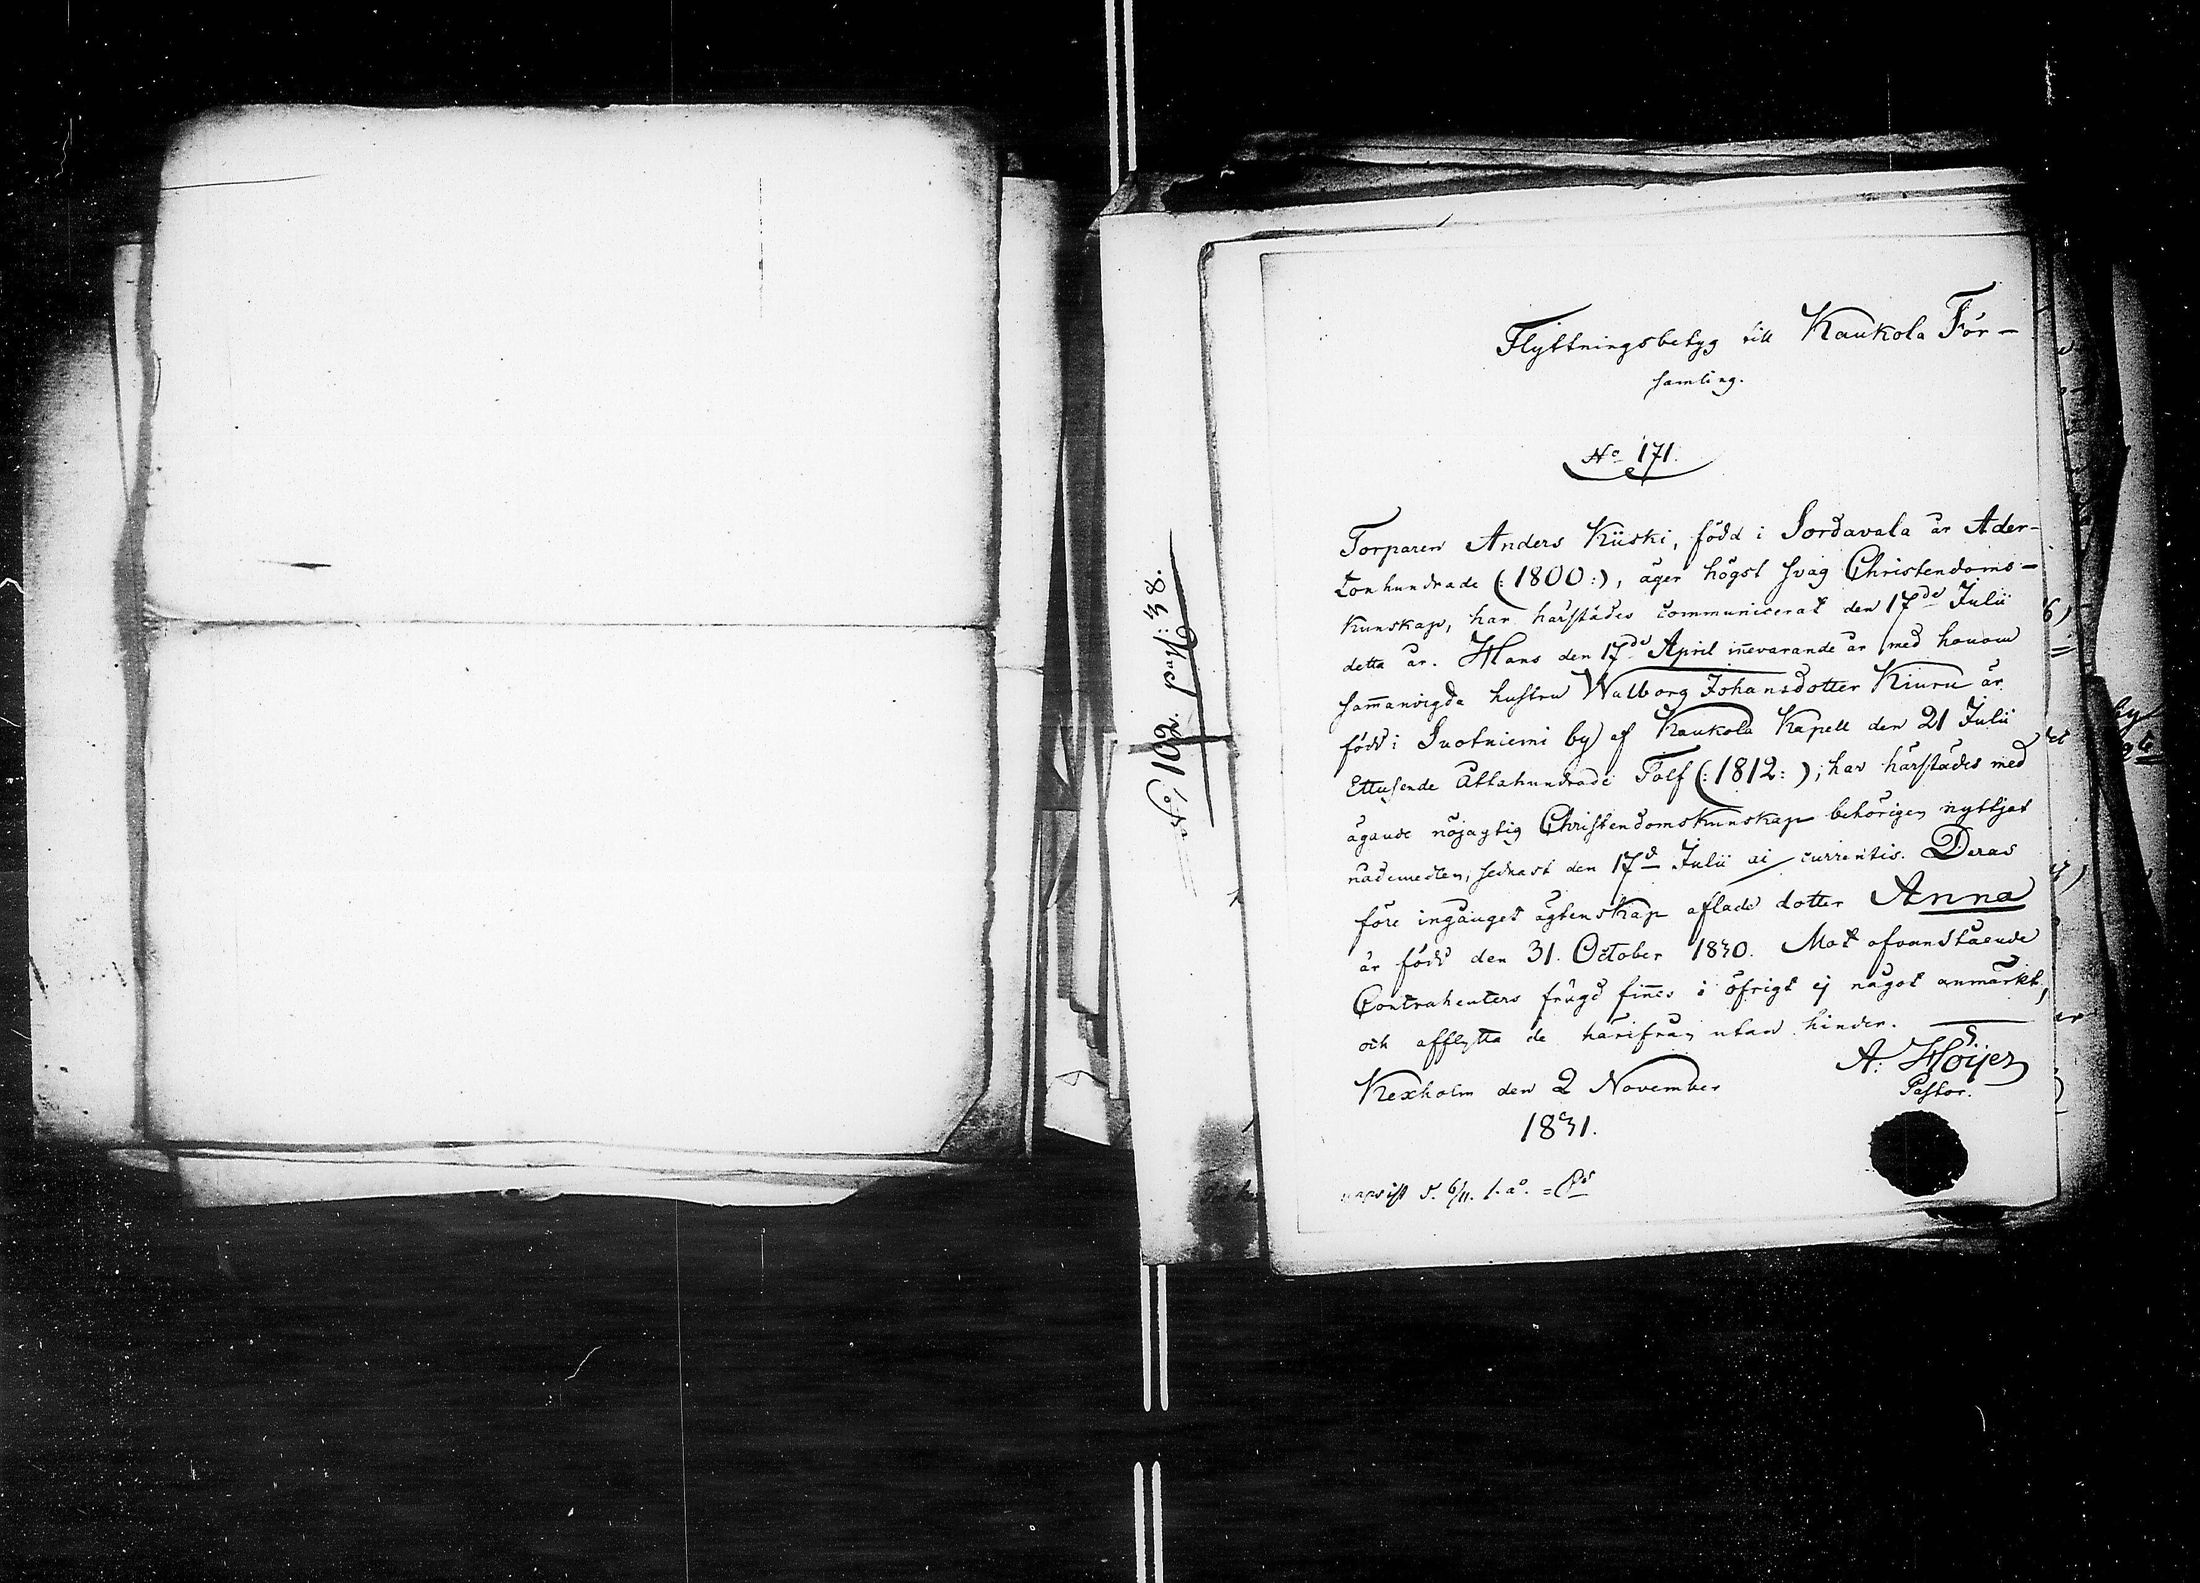 Flyttningsbetyg till Kaukola För-
samling.
No 171.
Torparen Anders Kiiski, född i Sordavala år Ader-
tonhundrade (:1800:), äger högst svag Christendoms-
kunskap, har härstädes communicerat den 17de Julii
detta år. Hans den 17de April in̄evarande år med honom
sam̄anvigda hustru Walborg Johansdotter Kiuru är
född i Suotniemi by af Kaukola Kapell den 21 Julii
Ettusende Åttahundrade Tolf (:1812:); har härstädes med
ägande nöjagtig Christendomskunskap behörigen nyttjat
nådemedlen, sednast den 17d Julii ai currentis. Deras
före ingånget ägtenskap aflade dotter Anna
är född den 31. October 1830. Mot ofvanstående
Contrahenters frägd fin̄es i öfrigt ej något anmärkt,
och afflytta de härifrån utan hinder.
Kexholm den 2 November
1831.
A. Höijer
Pastor.
uppvist d. 6/11. s. ao.
No 102. pag: 38.